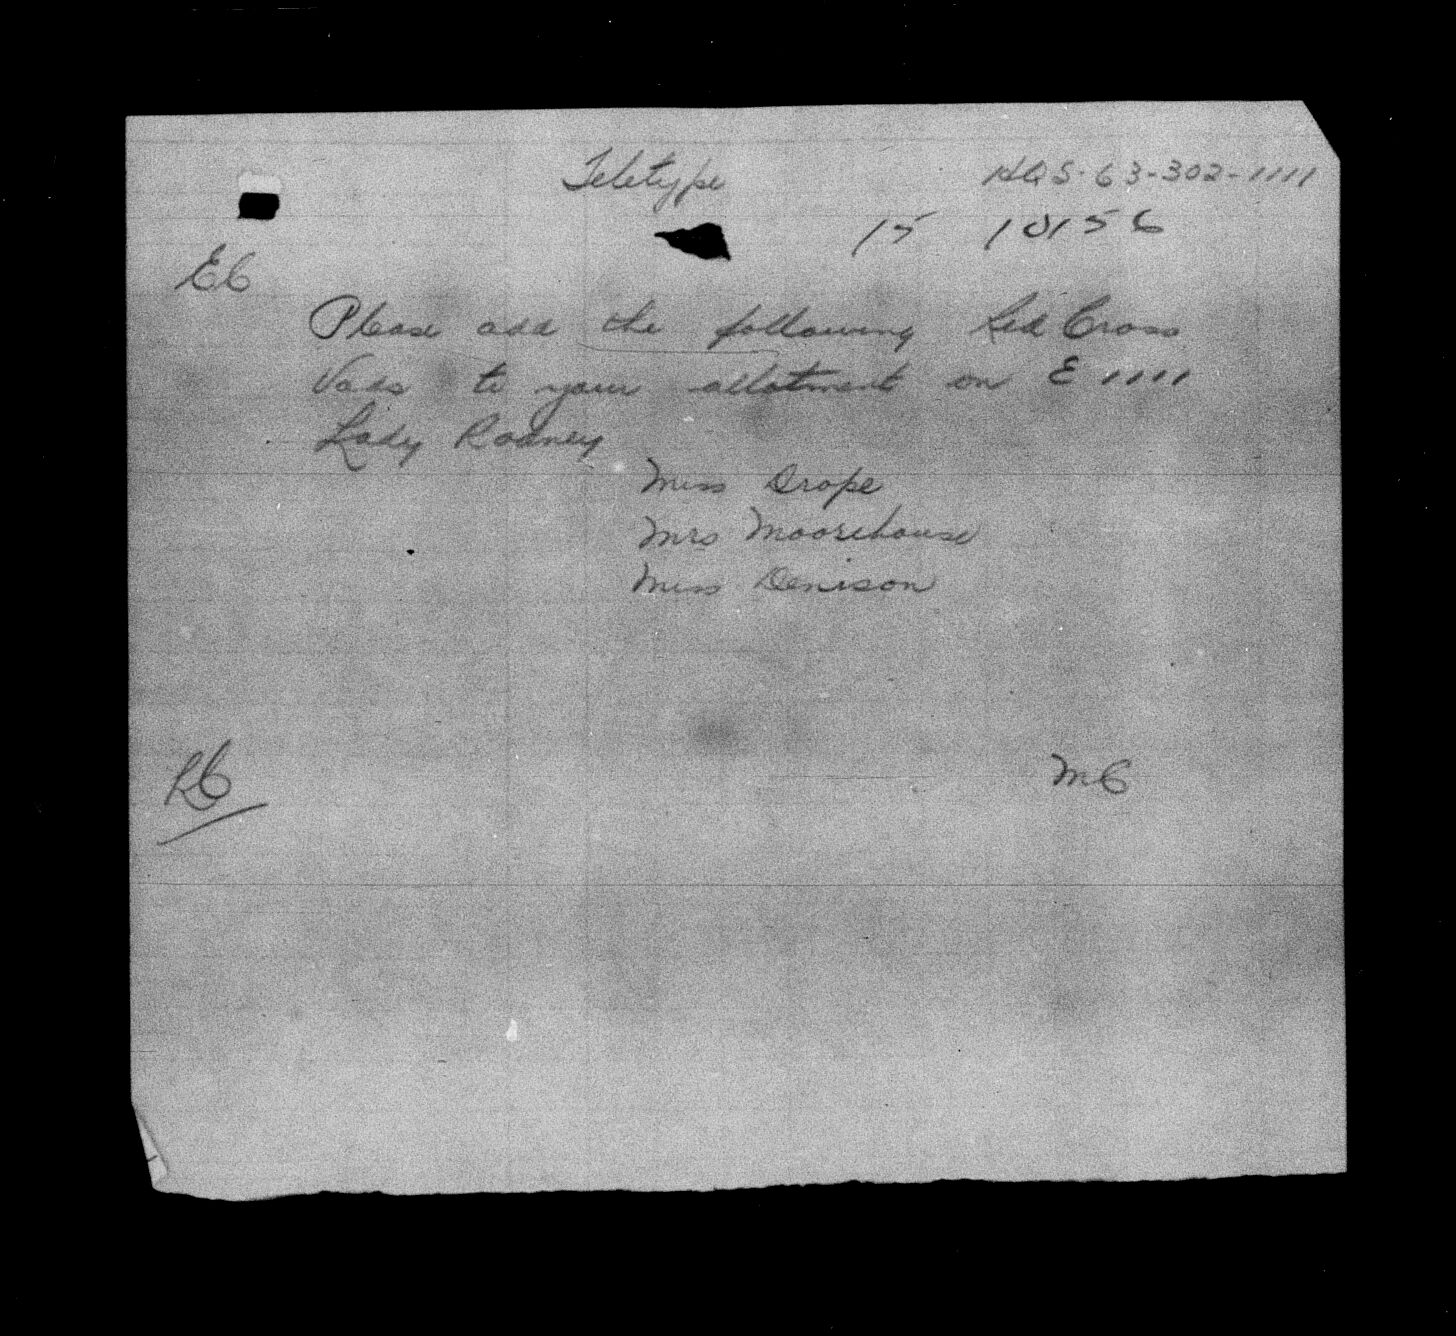 Teletype HQS-63-302-1111
15 10156
EC
Please add the following Red Cross
Vads to your allotment on E 1111
Lady Rodney
Miss Drope
Mrs Moorehouse
Miss Denison
RC MC